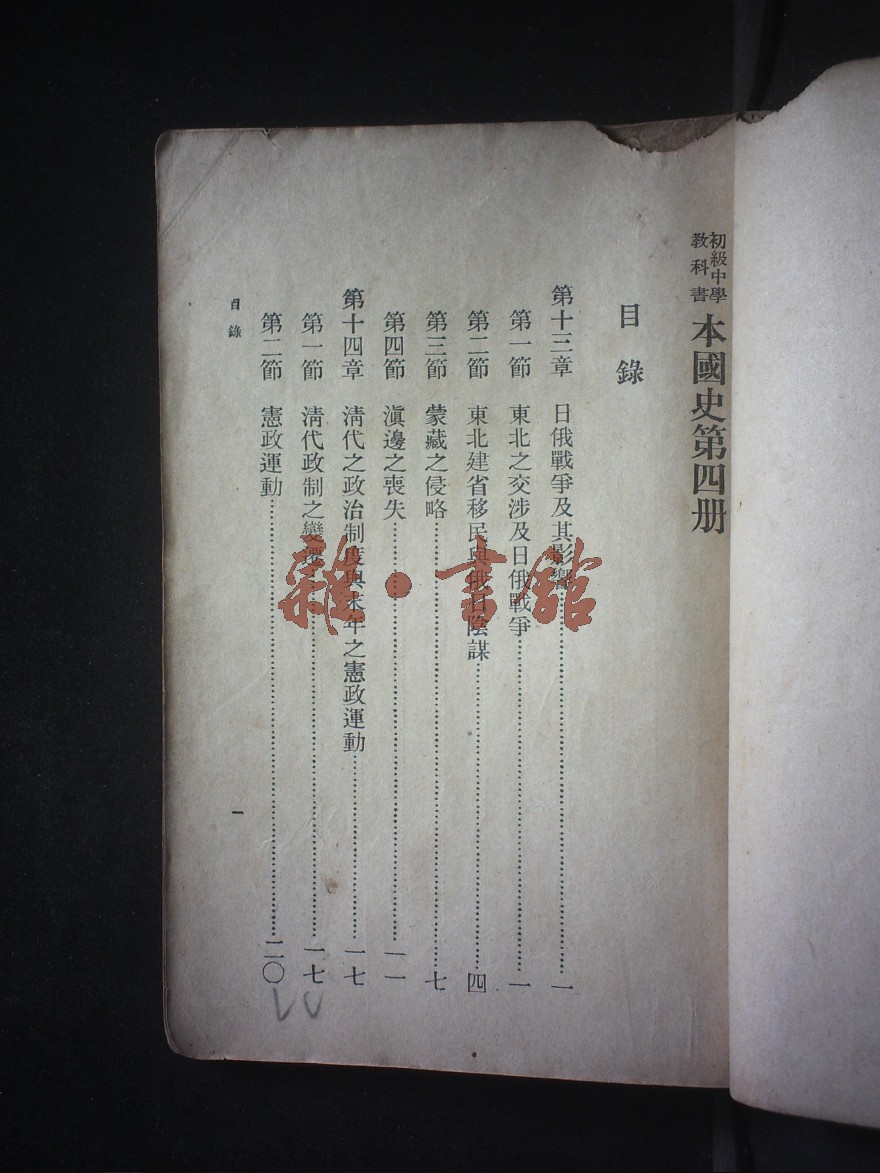 初級中學
教科書
本國史第四册
目錄
第十三章 日俄戰爭及其影響……一
第一節 東北之交涉及日俄戰爭……一
第二節 東北建省移民與俄日陰謀……四
第三節 蒙藏之侵略……七
第四節 滇邊之喪失……一一
第十四章 清代之政治制度與末年之憲政運動……一七
第一節 清代政制之變遷……一七
第二節 憲政運動……二〇
目錄
一
雜·書館